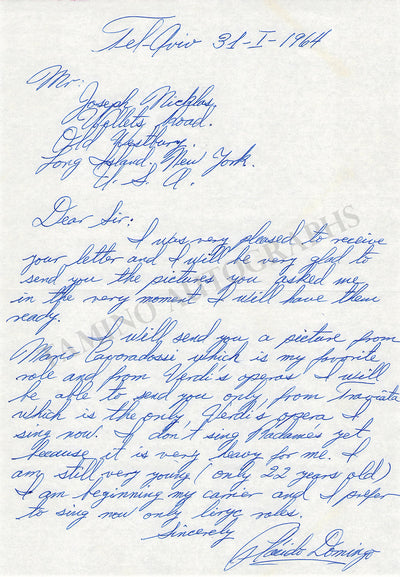 Tel-Aviv 31-I-1964
Mr:
Joseph Nicklas
Willets Road.
Old Westbury.
Long Island. New York.
U. S. A.
Dear Sir:
I was very pleased to receive
your letter and I will be very glad to
send you the picture you asked me
in the very moment I will have them
ready.
I will send you a picture from
Mario Cavaradossi which is my favorite
role and from Verdi's operas I will
be able to send you only from Traviata
which is the only Verdi's opera I
sing now. I don't sing Radamés yet
because it is very heavy for me. I
am still very young (only 22 years old)
I am beginning my carrier and I prefer
to sing now only liryc roles.
Sincerely
Plácido Domingo
TAMINO AUTOGRAPHS